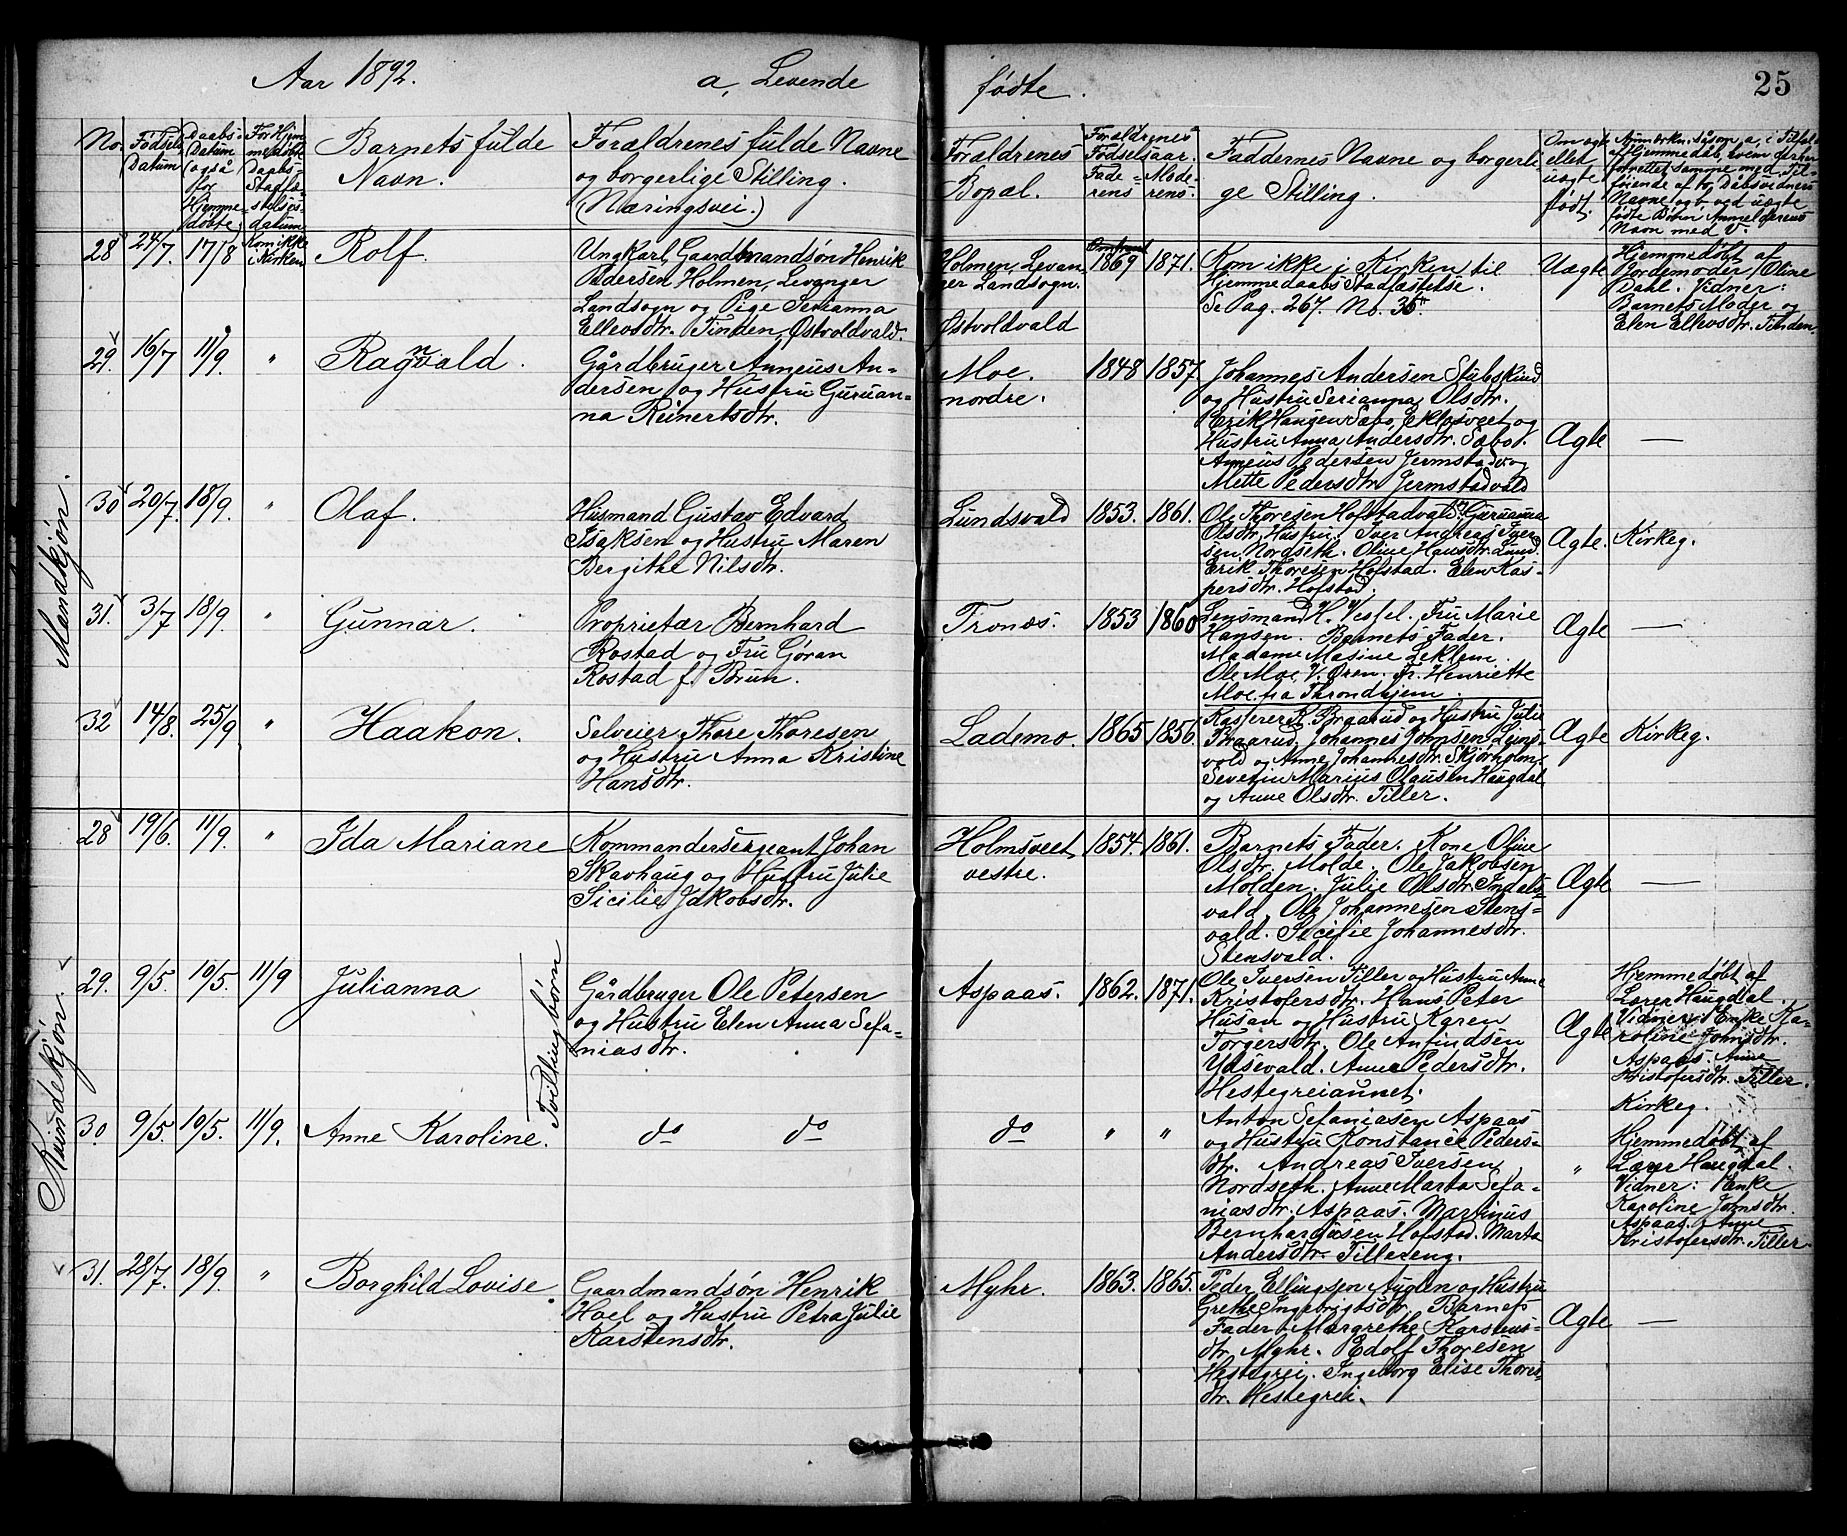 Aar 1892. a, Levende fødte. 25
No. Fødsels Datum Daabs- Datum (også for Hjemme- døbte) For Hjem- medøbte Daabs- Stadfæ- stelses- datum Barnets fulde Navn. Forældrenes fulde Navne og borgerlige Stilling. (Næringsvei.) Forældrenes Bopæl. Forældrenes Fødselsaar. Fade- rens Mode- rens. Faddernes Navne og borgerli- ge Stilling. Om ægte eller uægte født.
Mandkjøn.
28 24/7. 17/8 Kom ikke i Kirken Rolf.
Ungkarl, Gaardmandsøn Henrik
Pedersen Holmen, Levanger
Landsogn og Pige Serianna
Ellevsdtr. Tinden, Østvoldvald.
Holmen, Levan-
ger Landsogn.
Østvoldvald
Omtrent 1869 1871.
Kom ikke i Kirken til
Hjemmedaabs Stadfæstelse.
Se Pag. 267. No. 36.
Uægte
Hjemmedøbt af
Jordemoder Oline
Dahl. Vidner:
Barnets Moder og
Elen Ellevsdtr. Tinden
29. 16/7 11/9. " Ragnvald.
Gårdbruger Anneus An-
dersen og Hustru Guruan-
na Reinertsdtr.
Moe.
nordre.
1848 1857
Johannes Andersen Stubskind
og Hustru Serianna Olsdtr.
Erik Haugen Sæbo, Ekløsveet og
Hustru Anna Andersdtr. Sæbo.
Anneus Pedersen Jermstad og
Mette Pedersdtr. Jermstadvald
Ægte —
30 20/7. 18/9. " Olaf.
Husmand Gustav Edvard
Isaksen og Hustru Maren
Bergithe Nilsdtr.
Lundsvald 1853. 1861.
Ole Thoresen Hofstadvald. Guruanna
Olsdtr. Hustru. Iver Andreas Iver-
sen Nordseth. Oline Hansdtr. Lund.
Erik Thoresen Hofstad. Elen Kas-
persdtr. Hofstad.
Ægte. Kirkeg.
31. 3/7 18/9. " Gunnar.
Proprietær Bernhard
Rostad og Fru Gøran
Rostad f. Brun.
Tronæs. 1853 1860
Lensmand H. Vessel. Fru Marie
Hansen. Barnets Fader.
Madame Masine Leklem.
Ole Moe V. Øren. Fr. Henriette
Moe fra Throndhjem.
Ægte —
32 14/8. 25/9 " Haakon.
Selveier Thore Thoresen
og Hustru Anna Kristine
Hansdtr.
Lademo. 1865 1856.
Kasserer K. Braarud og Hustru Julie
Braarud. Johannes Johnsen Lyng-
vold og Anne Johannesdtr. Skjørholm.
Severin Marius Olausen Haugdal
og Anne Olsdtr. Tiller.
Ægte Kirkeg.
Kvindekjøn.
28 19/6. 11/9. " Ida Mariane
Kommandersergeant Johan
Skavhaug og Hustru Julie
Sicilie Jakobsdtr.
Holmsveet,
vestre.
1854. 1861.
Barnets Fader. Kone Oline
Olsdtr. Molde. Ole Jakobsen
Molden. Julie Olsdtr. Indals-
vald. Ole Johannesen Stens-
vald. Sicilie Johannesdtr.
Stensvald.
Ægte —
29. 9/5. 10/5. 11/9 Julianna
Tvillingbørn
Gårdbruger Ole Petersen
og Hustru Elen Anna Sefa-
niasdtr.
Aspaas. 1862. 1871.
Ole Iversen Tiller og Hustru Anne
Kristofersdtr. Hans Peter
Husan og Hustru Karen
Torgersdtr. Ole Anfindsen
Ydsevald. Anne Pedersdtr.
Hestegreiaunet.
Ægte
Hjemmedøbt af
Lærer Haugdal.
Vidner: Enke Ka-
roline Johnsdtr.
Aspaas. Anne
Kristofersdtr. Tiller.
Kirkeg.
30 9/5. 10/5. 11/9. Anne Karoline. do do do " "
Anton Sefaniasen Aspaas
og Hustru Konstance Peders-
dtr. Andreas Iversen
Nordseth. Anne Marta Sefa-
niasdtr. Aspaas. Martinus
Bernhardusen Hofstad. Marta
Andersdtr. Tillereng.
"
Hjemmedøbt af
Lærer Haugdal.
Vidner: Enke
Karoline Johnsdtr.
Aspaas. Anne
Kristofersdtr. Tiller.
31. 28/7. 18/9. " Borghild Lovise.
Gaardmandsøn Henrik
Hoel og Hustru Petra Julie
Karstensdtr.
Myhr. 1863. 1865.
Peder Ellingsen Auglen og Hustru
Grethe Ingebrigtsdtr. Barnets
Fader. Margrethe Karstens-
dtr. Myhr. Edolf Thoresen
Hestegrei. Ingeborg Elise Thores-
dtr. Hestegrei.
Ægte —